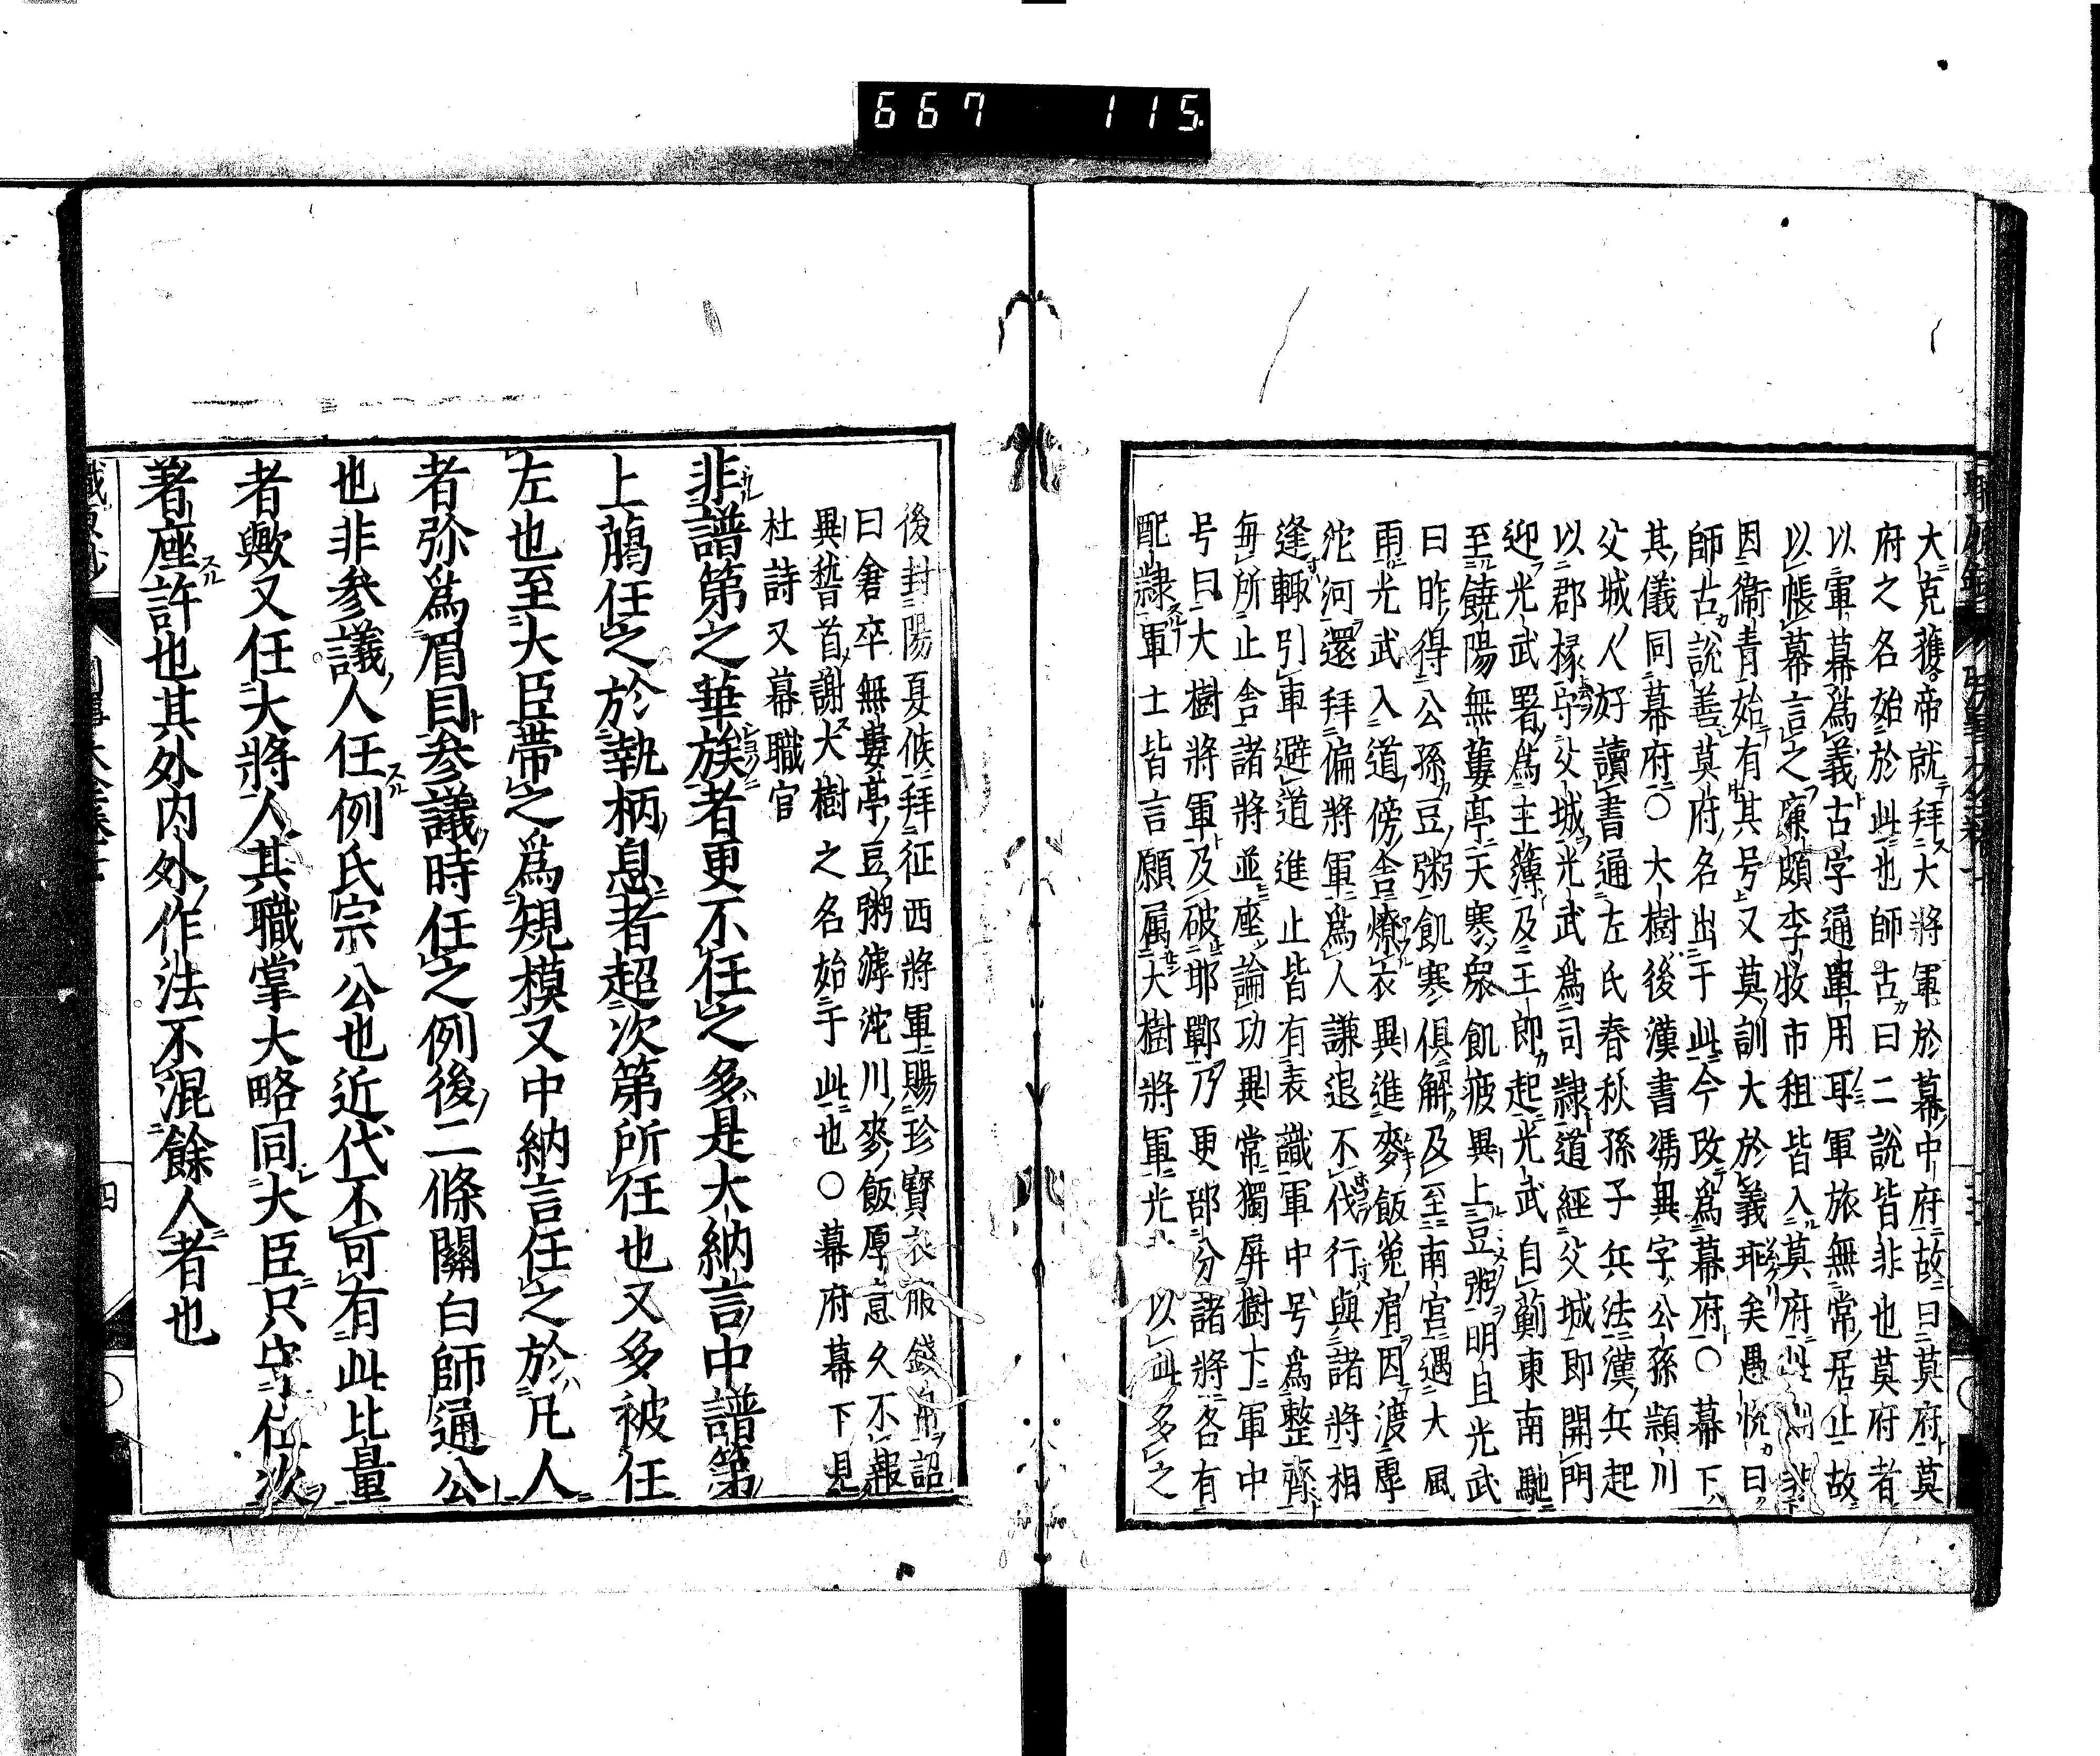 667 115
大克獲帝就拜大將軍於幕中府故曰莫府莫
府之名始於此也師古曰二說皆非也莫府者
以軍幕為義古字通單用耳軍旅無常居止故
以帳幕言之廉頗李牧市租皆入莫府此非
因衞青始有其号又莫訓大於義乖矣愚恱曰
師古說善莫府名出于此今改為幕府○幕下
其儀同幕府○大樹後漢書馮異字公孫頴川
父城人好讀書通左氏春秋孫子兵法漢兵起
以郡掾守父城光武為司隷道經父城即開門
迎光武署為主簿及王郎起光武自薊東南馳
至饒陽無蔞亭天寒衆飢疲異上豆粥明旦光武
曰昨得公孫豆粥飢寒俱解及至南宮遇大風
雨光武入道傍舎燎衣異進麥飯菟肩因渡虖
沱河還拜偏將軍為人謙退不伐行與諸將相
逢輙引車避道進止皆有表識軍中号為整齊
每所止舎諸將並座論功異常獨屏樹下軍中
号曰大樹將軍及破邯鄲乃更部分諸將各有
配隷軍士皆言願屬大樹將軍光以此多之
後封陽夏候拜征西將軍賜珍寳衣服錢帛詔
曰倉卒無蔞亭豆粥滹沱川麥飯厚意久不報
異稽首謝大樹之名始于此也○幕府幕下見
杜詩又幕職官
非譜第之華族者更不任之多是大納言中譜第
上﨟任之於執柄息者超次第所任也又多被任
左也至大臣帯之為規模又中納言任之於凡人
者弥為眉目参議時任之例後二條關白師通公
也非参議人任例氏宗公也近代不可有此比量
者歟又任大將人其職掌大略同大臣只守仕次
著座許也其外内外作法不混餘人者也